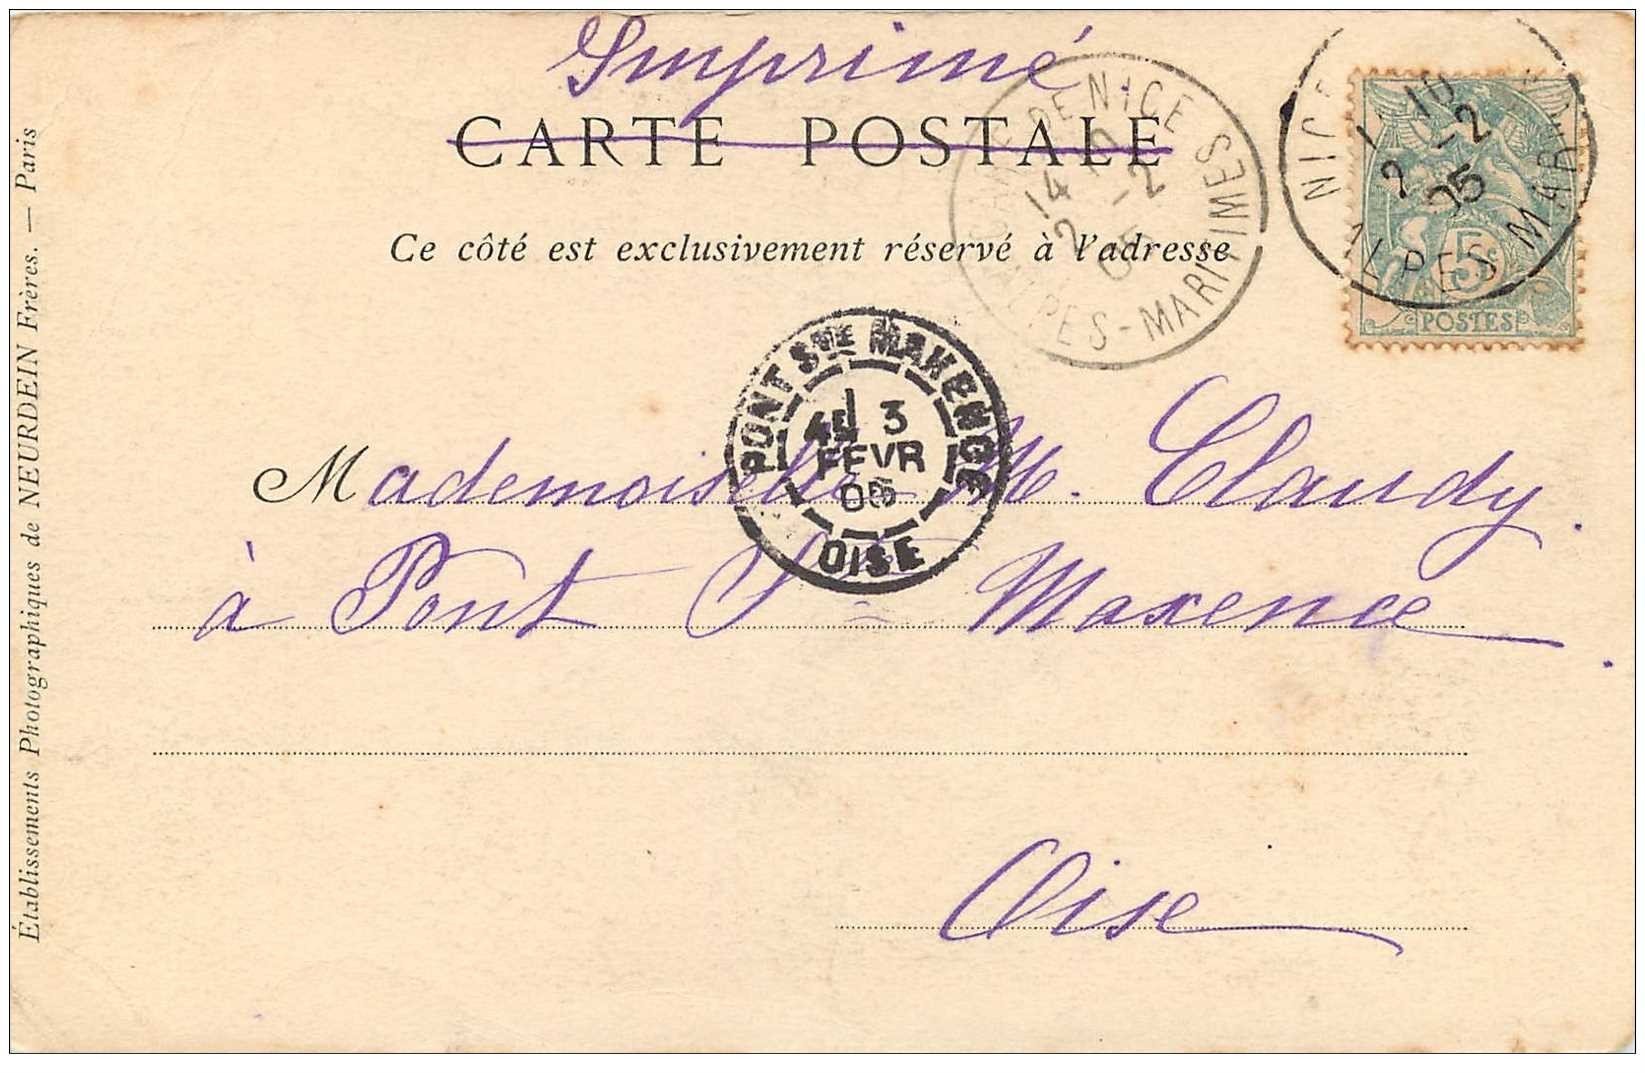 Imprimé
CARTE POSTALE
Ce côté est exclusivement réservé à l'adresse
DE NICE
14 10
2 -2
05
ALPES-MARITIMES
NICE
10
2 -2
05
ALPES MARIT
5c
POSTES
PONT STE MAXENCE
45 3
FEVR
05
OISE
Mademoiselle M. Claudy.
à Pont Ste Maxence.
Oise
Établissements Photographiques de NEURDEIN Frères. — Paris